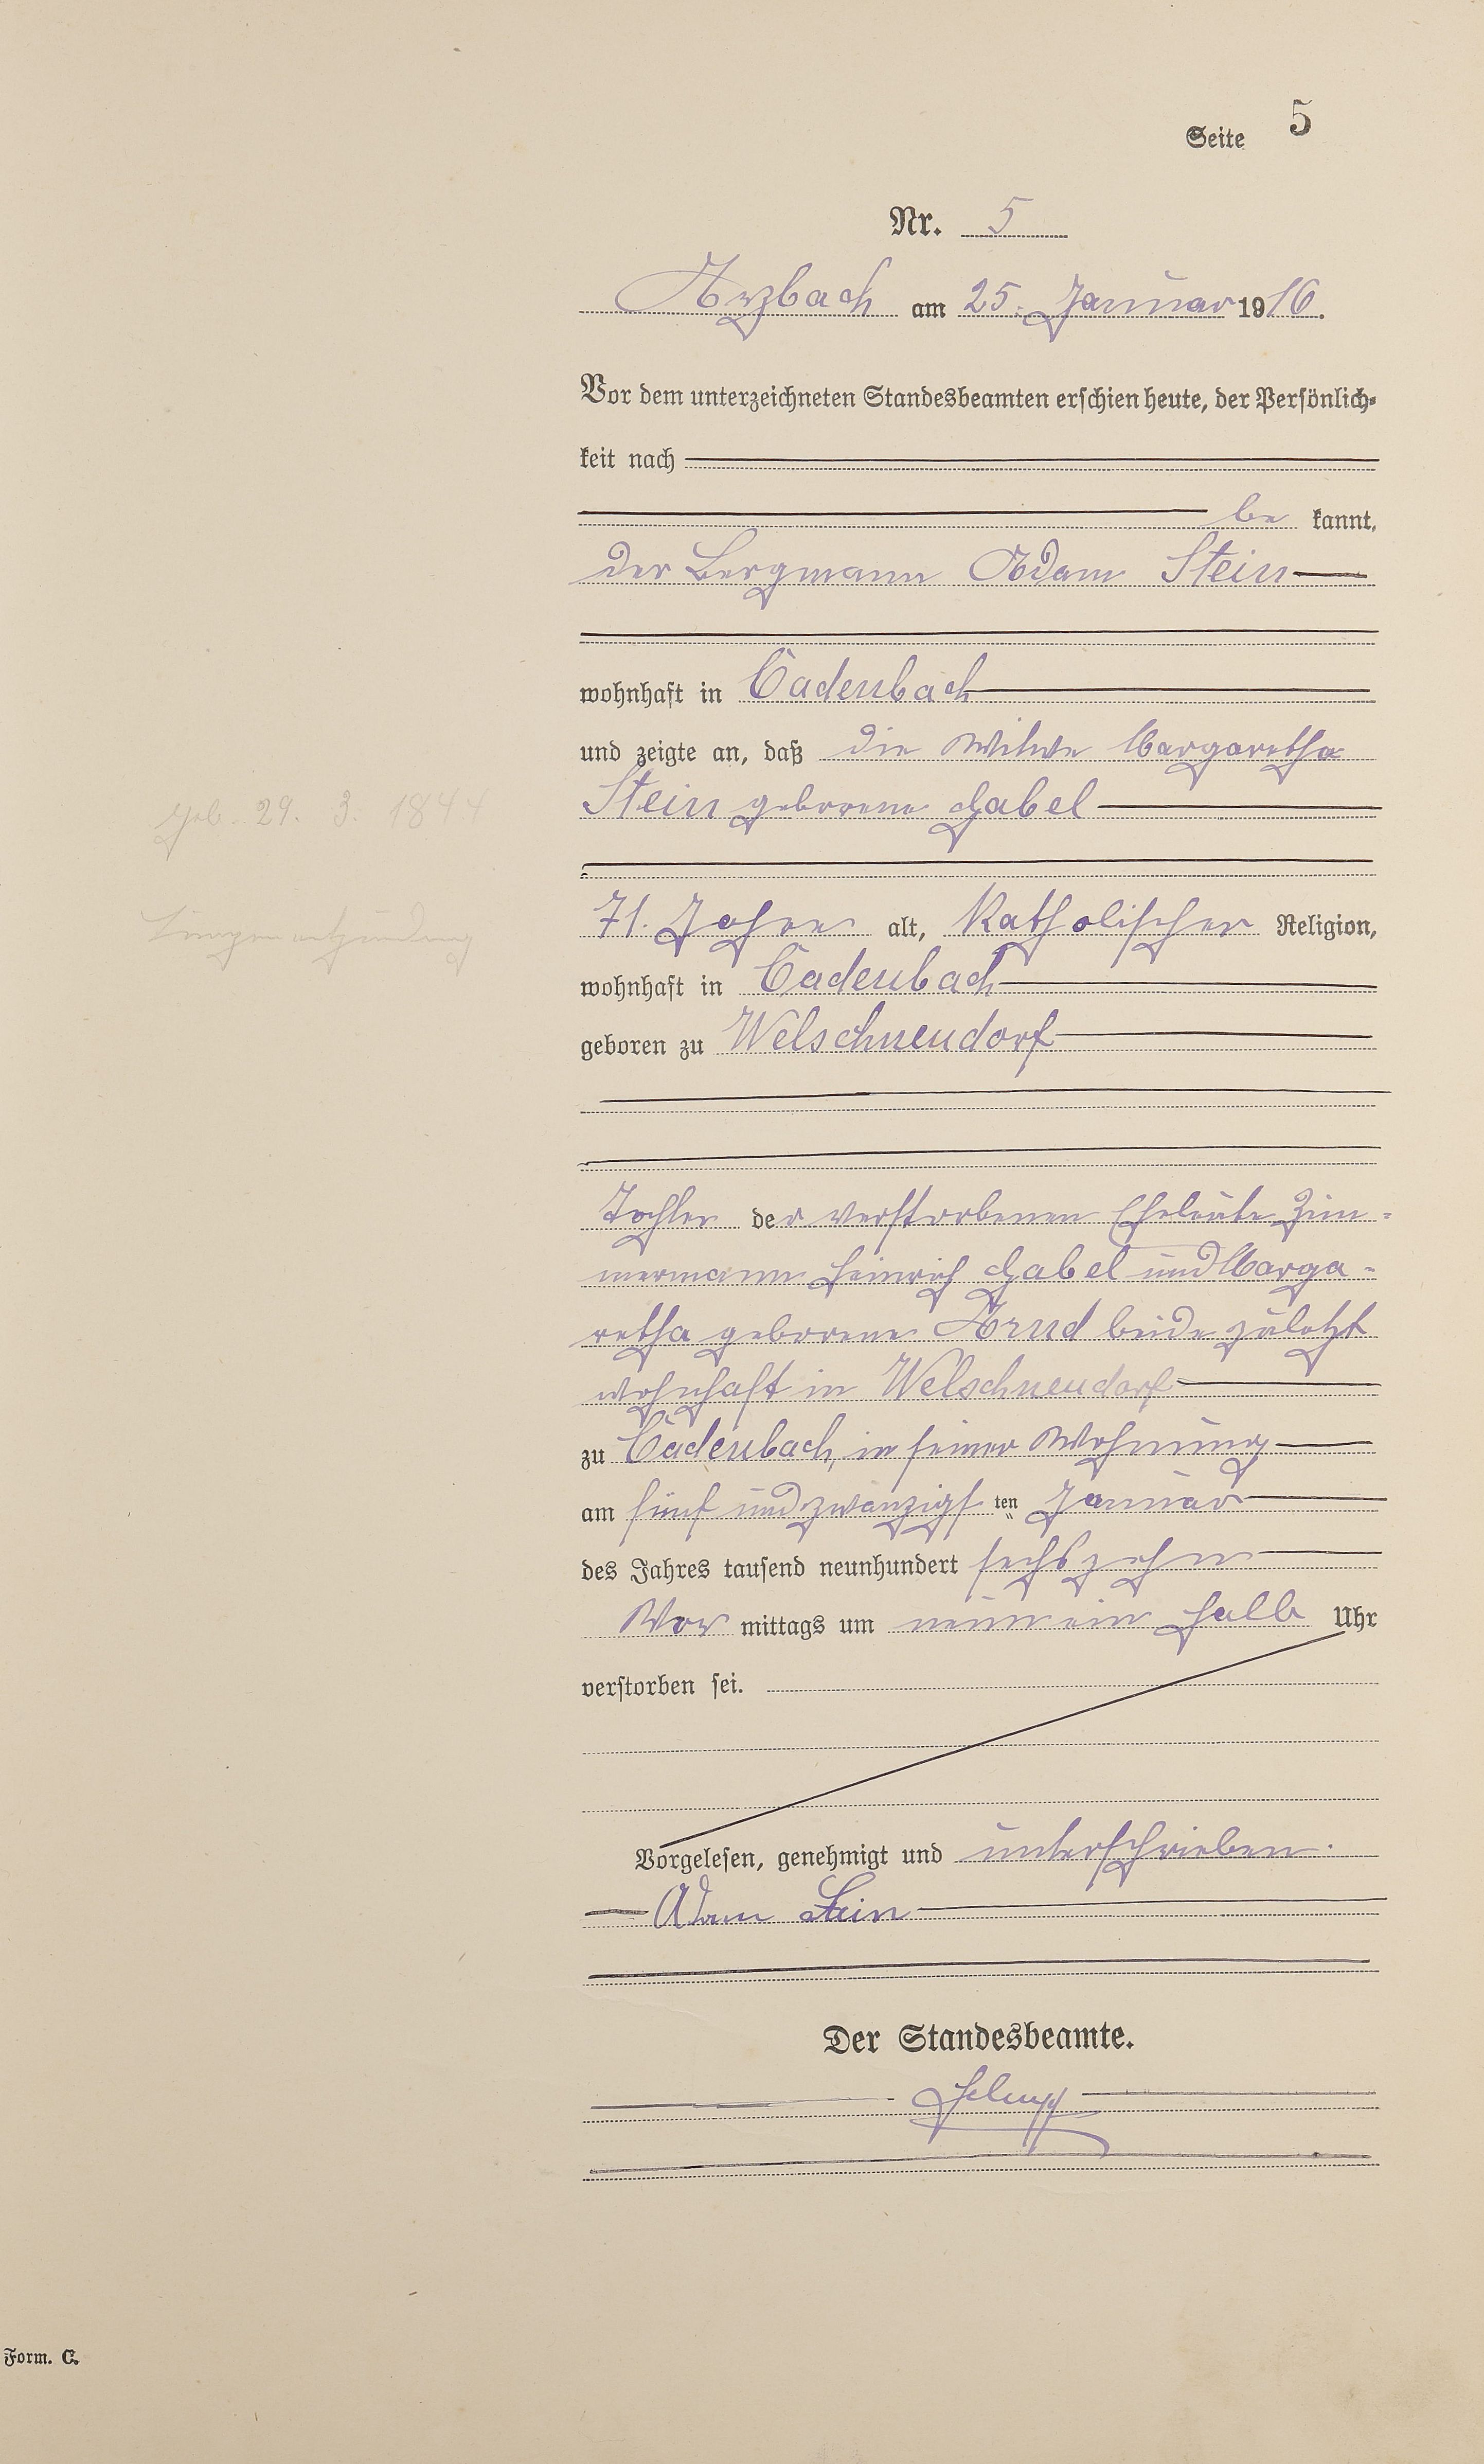 Seite 5
Nr. 5
Arzbach am 25. Januar 1916.
Vor dem unterzeichneten Standesbeamten erschien heute, der Persönlich-
keit nach
be kannt,
der Bergmann Adam Stein
wohnhaft in Cadenbach
und zeigte an, daß die Witwe Margaretha
Stein geborene Gabel
geb. 29. 3. 1844
71. Jahre alt, Katholischer Religion,
Lungenentzündung
wohnhaft in Cadenbach
geboren zu Welschneudorf
Tochter der verstorbenen Eheleute Zim-
mermann Heinrich Gabel und Marga-
retha geborene Arnd beide zuletzt
wohnhaft in Welschneudorf
zu Cadenbach, in seiner Wohnung
am fünf und zwanzigs ten Januar
des Jahres tausend neunhundert sechszehn
Vor mittags um neun ein halb Uhr
verstorben sei.
Vorgelesen, genehmigt und unterschrieben.
Adam Stein
Der Standesbeamte.
Form. C.